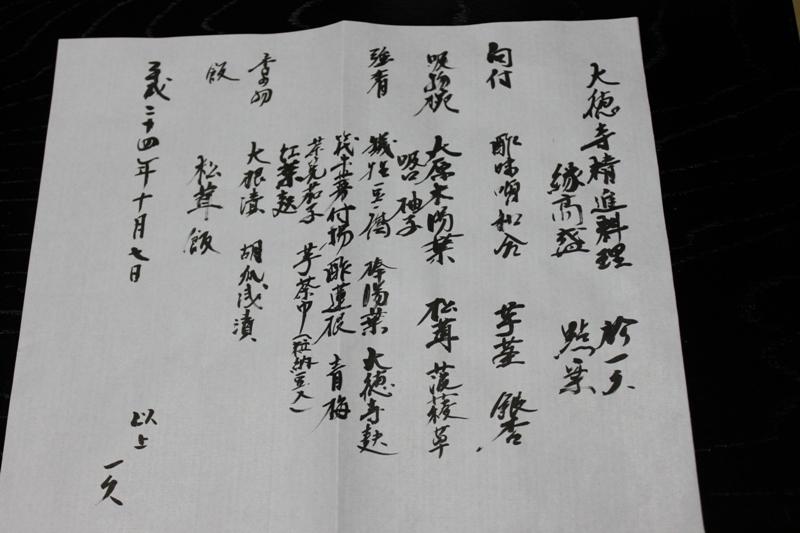 大徳寺精進料理 於一久
縁高盛 點菜
向付 酢味噌和会 芋茎 銀杏
吸物椀 大原木湯葉 松茸 菠薐草
吸口 柚子
強肴 擬製豆腐 棒湯葉 大徳寺麸
牛蒡付揚 酢蓮根 青梅
茶筅茄子 芋茶巾(粒納豆入)
紅葉麸
香の物 大根漬 胡瓜浅漬
飯 松茸飯
二十四年十月七日
以上
一久